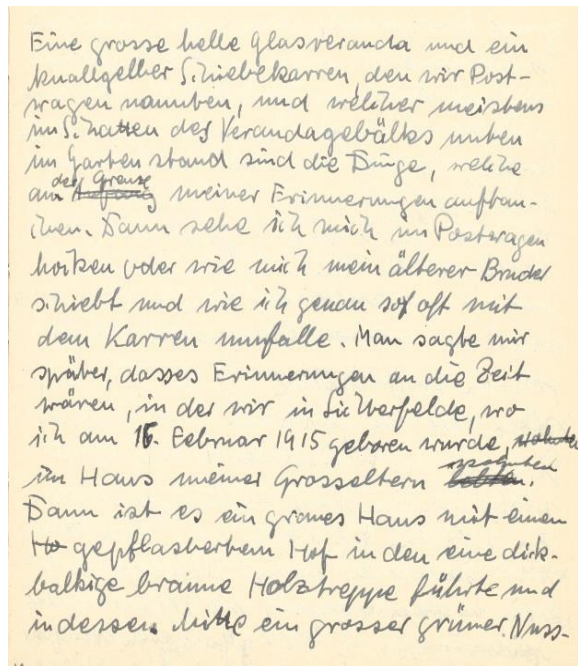 Eine grosse helle Glasveranda und ein
knallgelber Schiebekarren, den wir Post-
wagen nannten, und welcher meistens
im Schatten des Verandagebälks unten
im Garten stand sind die Dinge, welche
an der Grenze meiner Erinnerungen auftau-
chen. Dann sehe ich mich im Postwagen
hocken oder wie mich mein älterer Bruder
schiebt und wie ich genau so oft mit
dem Karren umfalle. Man sagte mir
später, dasses Erinnerungen an die Zeit
wären, in der wir in Lichterfelde, wo
ich am 16. Februar 1915 geboren wurde, wohnten
im Haus meiner Grosseltern
Dann ist es ein graues Haus mit einen
Ho gepflasterten Hof in den eine dick-
balkige braune Holztreppe führte und
in dessen Mitte ein grosser grüner Nuss-